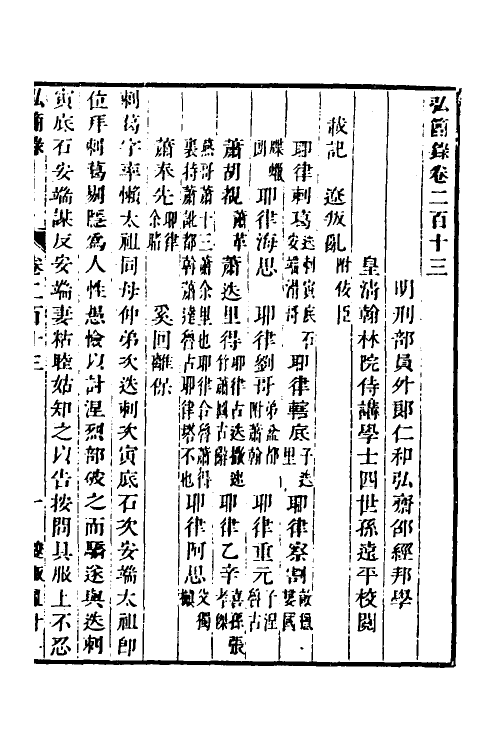 弘簡錄卷二百十三
明刑部員外郎仁和弘齋邵經邦學
皇清翰林院侍講學士四世孫遠平校閱
載記 遼叛亂附佞臣
耶律剌葛迭剌寅底石安端滑哥 耶律轄底子迭里 耶律察割敵獵婁國
牒蠟朗 耶律海思 耶律劉哥弟盆都附蕭翰 耶律重元子涅魯古
蕭胡覩蕭革 蕭迭里得耶律古迭撒速竹蕭圖古辭 耶律乙辛喜孫張孝傑
燕哥蕭十三蕭余里也耶律合魯蕭得裏特蕭訛都斡蕭達魯古耶律塔不也 耶律阿思
蕭奉先耶律余睹 奚回離保
剌葛字率懶太祖同母仲弟次迭剌次寅底石次安端太祖即
位拜剌葛剔隱為人性愚憸以討涅烈部破之而驕遂與迭剌
寅底石安端謀反安端妻粘睦姑知之以告按問具服上不忍
弘簡錄 卷二百十三 一